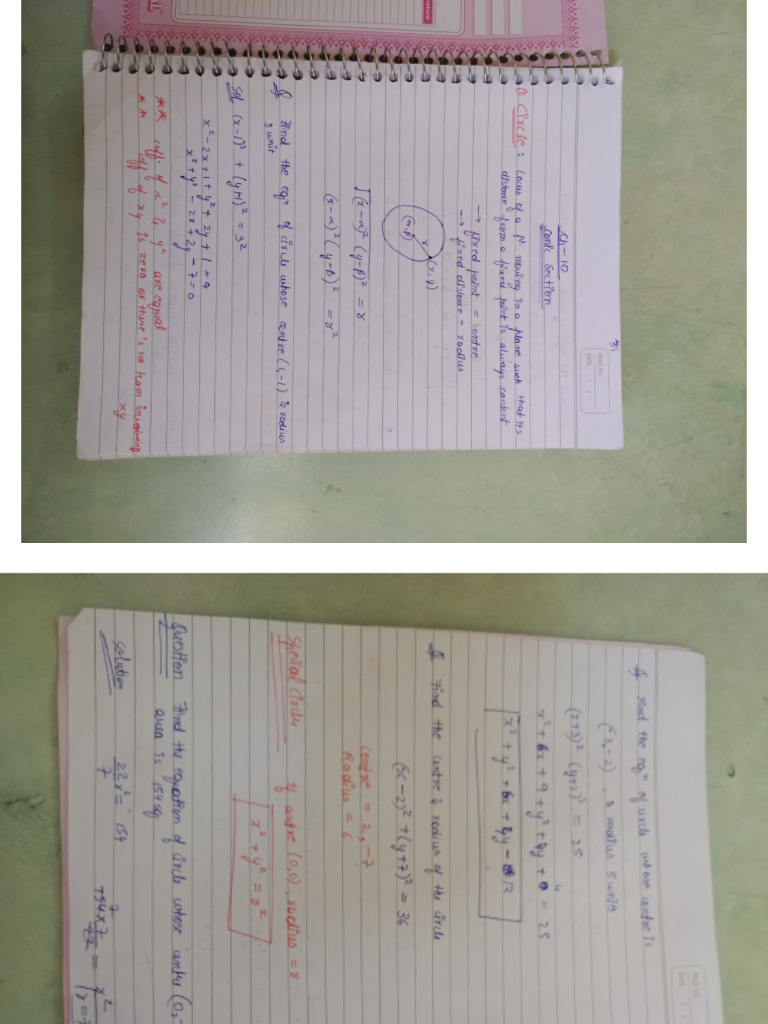 Ch-10
Conic Section
① Circle : Locus of a pt. moving in a plane such that its
distance from a fixed point is always contant
→ fixed point = centre
→ fixed distance = radius
r
(x, y)
(α,β)
√(x-α)² (y-β)² = r
(x-α)² (y-β)² = r²
Q Find the eqⁿ of circle whose centre (1,-1) & radius
3 unit
Sol (x-1)² + (y+1)² = 3²
x² - 2x + 1 + y² + 2y + 1 = 9
x² + y² - 2x + 2y - 7 = 0
** coff. of x² & y² are equal
** coff of xy is zero or there's no team involving
xy
Q Find the eqⁿ of circle whose centre is
(-3, -2), & radius 5 unit
(x+3)² (y+2)² = 25
x² + 6x + 9 + y² + 4y + 4 = 25
x² + y² + 6x + 4y - 12
Q Find the centre & radius of the circle
(x-2)² + (y+7)² = 36
Centre = 2, -7
Radius = 6
Special Circle if centre (0,0), radius = r
x² + y² = r²
Question Find the equation of circle whose centre (0,-
area is 154sq
Solution 22/7 r² = 154
154×7/22 = r²
7
r = 7